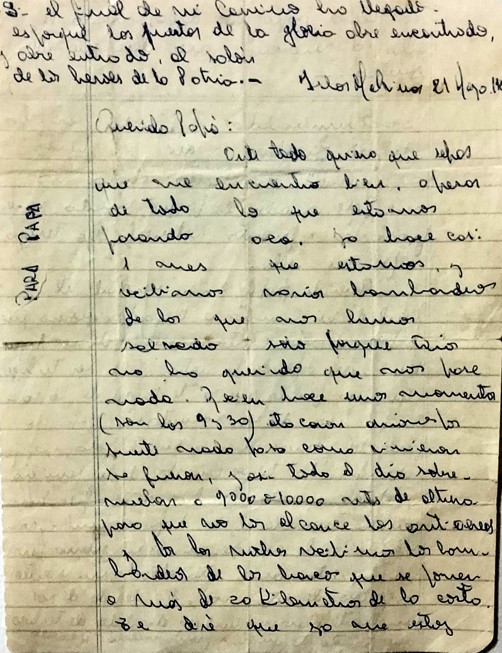 S- el final de mi Camino ha llegado.
es porque las puertas de la gloria abre encontrado,
y abre entrado, al salón
de los heroes de la Patria.-
Islas Malvinas 21 Mayo
Querido Papá:
Ante todo quiero que sepas
que me encuentro bien, a pesar
de todo lo que estamos
pasando aca, ya hace casi
1 mes que estamos, y
recibimos varios bombardeos
de los que nos hemos
salvado solo porque Dios
no ha querido que nos pase
nada. Recien hace unos momentos
(son las 9 y 30) atacaron aviones por
suerte nada paso como vinieron
se fueron, y asi todo el dia sobre-
vuelan a 9000 o 10000 mts de altura
para que no los alcance los anti-aereos
y por las noches recibimos los bom-
bardeos de los barcos que se ponen
a más de 20 Kilometros de la costa.
Te dire que ya me estoy
PARA PAPA